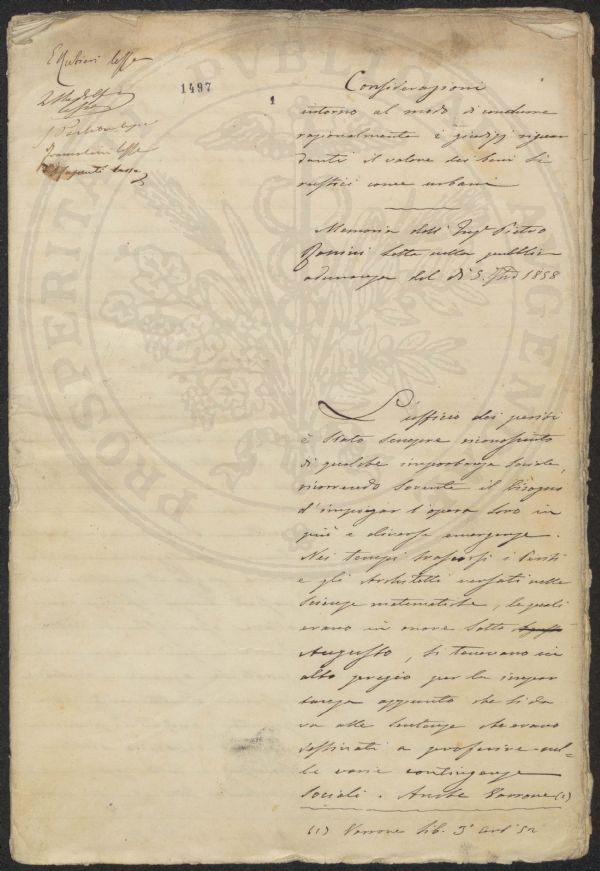 E Rubieri lesse
lesse
lesse
1497
1
Considerazioni
intorno al modo di condurre
razionalmente i giudizj riguar
danti il valore dei beni sì
rustici come urbani
Memoria dell' Ing.e Pietro
letta nella pubblica
adunanza del dì 5. 1858
L'officio dei periti
è stato sempre riconosciuto
di qualche importanza sociale,
ricorrendo sovente il bisogno
d'impiegar l'opera loro in
più e diverse emergenze.
Nei tempi trascorsi i Periti
e gli Architetti versati nelle
scienze matematiche, le quali
erano in onore sotto
Augusto, si tenevano in
alto pregio per la impor
tanza appunto che si da
va alle sentenze che erano
a proferire nel=
le varie contingenze
sociali. Anche Varrone (1)
(1) Varrone lib. 3°
PROSPERITATI PUBLICAE AUGENDAE